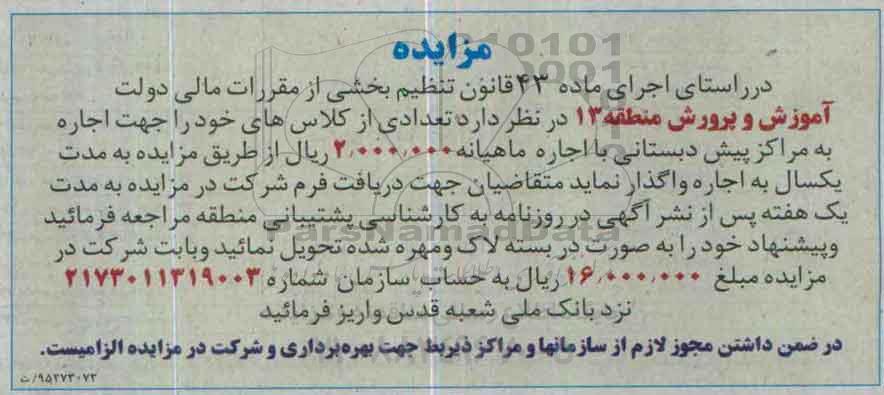 مزایده
در راستای اجرای ماده ۴۳ قانون تنظیم بخشی از مقررات مالی دولت
آموزش و پرورش منطقه ۱۳ در نظر دارد تعدادی از کلاس های خود را جهت اجاره
به مراکز پیش دبستانی با اجاره ماهیانه ۲٫۰۰۰٫۰۰۰ ریال از طریق مزایده به مدت
یکسال به اجاره واگذار نماید متقاضیان جهت دریافت فرم شرکت در مزایده به مدت
یک هفته پس از نشر آگهی در روزنامه به کارشناسی پشتیبانی منطقه مراجعه فرمائید
وپیشنهاد خود را به صورت در بسته لاک ومهره شده تحویل نمائید وبابت شرکت در
مزایده مبلغ ۱۶٫۰۰۰٫۰۰۰ ریال به حساب سازمان شماره ۲۱۷۳۰۱۱۳۱۹۰۰۳
نزد بانک ملی شعبه قدس واریز فرمائید
در ضمن داشتن مجوز لازم از سازمانها و مراکز ذیربط جهت بهره‌برداری و شرکت در مزایده الزامیست.
۹۵۲۷۳۰۷۲/ت
ParsNamadData